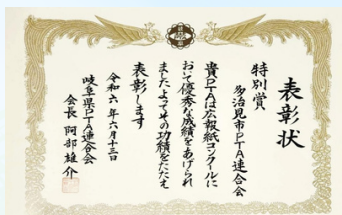 表彰状
特別賞
多治見市PTA連合会
貴PTAは広報紙コンクールに
おいて優秀な成績をあげられ
ましたよってその功績をたたえ
表彰します
令和六年六月十三日
岐阜県PTA連合会
会長 阿部雄介